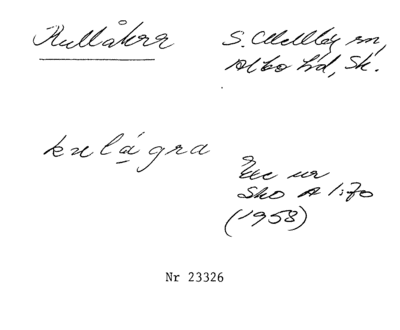 Kullåkra S. Mellby sn,
Albo hd, Sk.
kulágra
Exc ur
Sko A 1:70
(1958)
Nr 23326